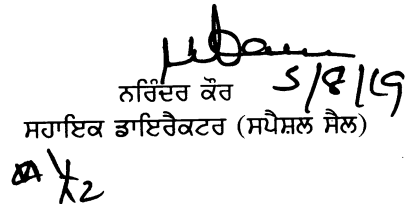 5/8/19
ਨਰਿੰਦਰ ਕੌਰ
ਸਹਾਇਕ ਡਾਇਰੈਕਟਰ (ਸਪੈਸ਼ਲ ਸੈਲ)